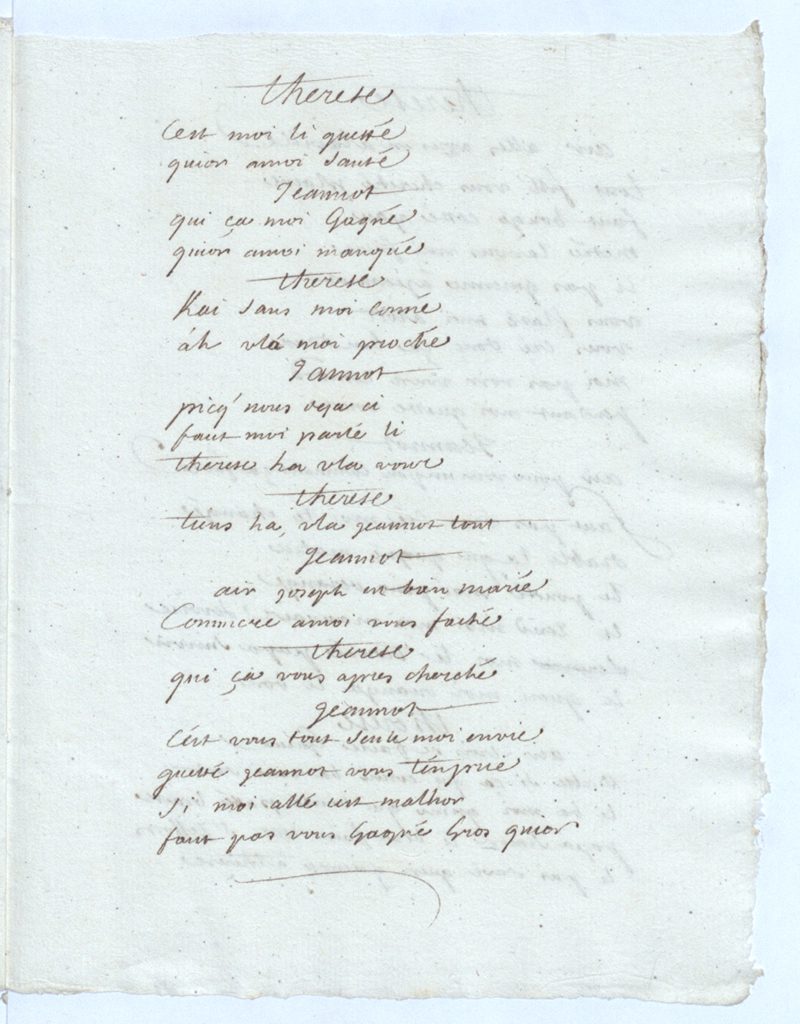 therese
C'est moi li quetté
quior amoi sauté
Jeannot
qui ça moi Gagné
quior amoi manqué
therese
Kai sans moi conné
áh vlá moi proché
Jannot
picq' nous deja ci
faut moi parlé li
therese ha vla vour
therese
tiens ha, vla jeannot tout
jeannot
air joseph est bien marié
Commere amoi vous faché
therese
qui ça vous apres cherché
jeannot
C'est vous tout seule moi envie
quetté jeannot vous t'en prie
Si moi allé cest malhor
faut pas vous Gagné Gros quior